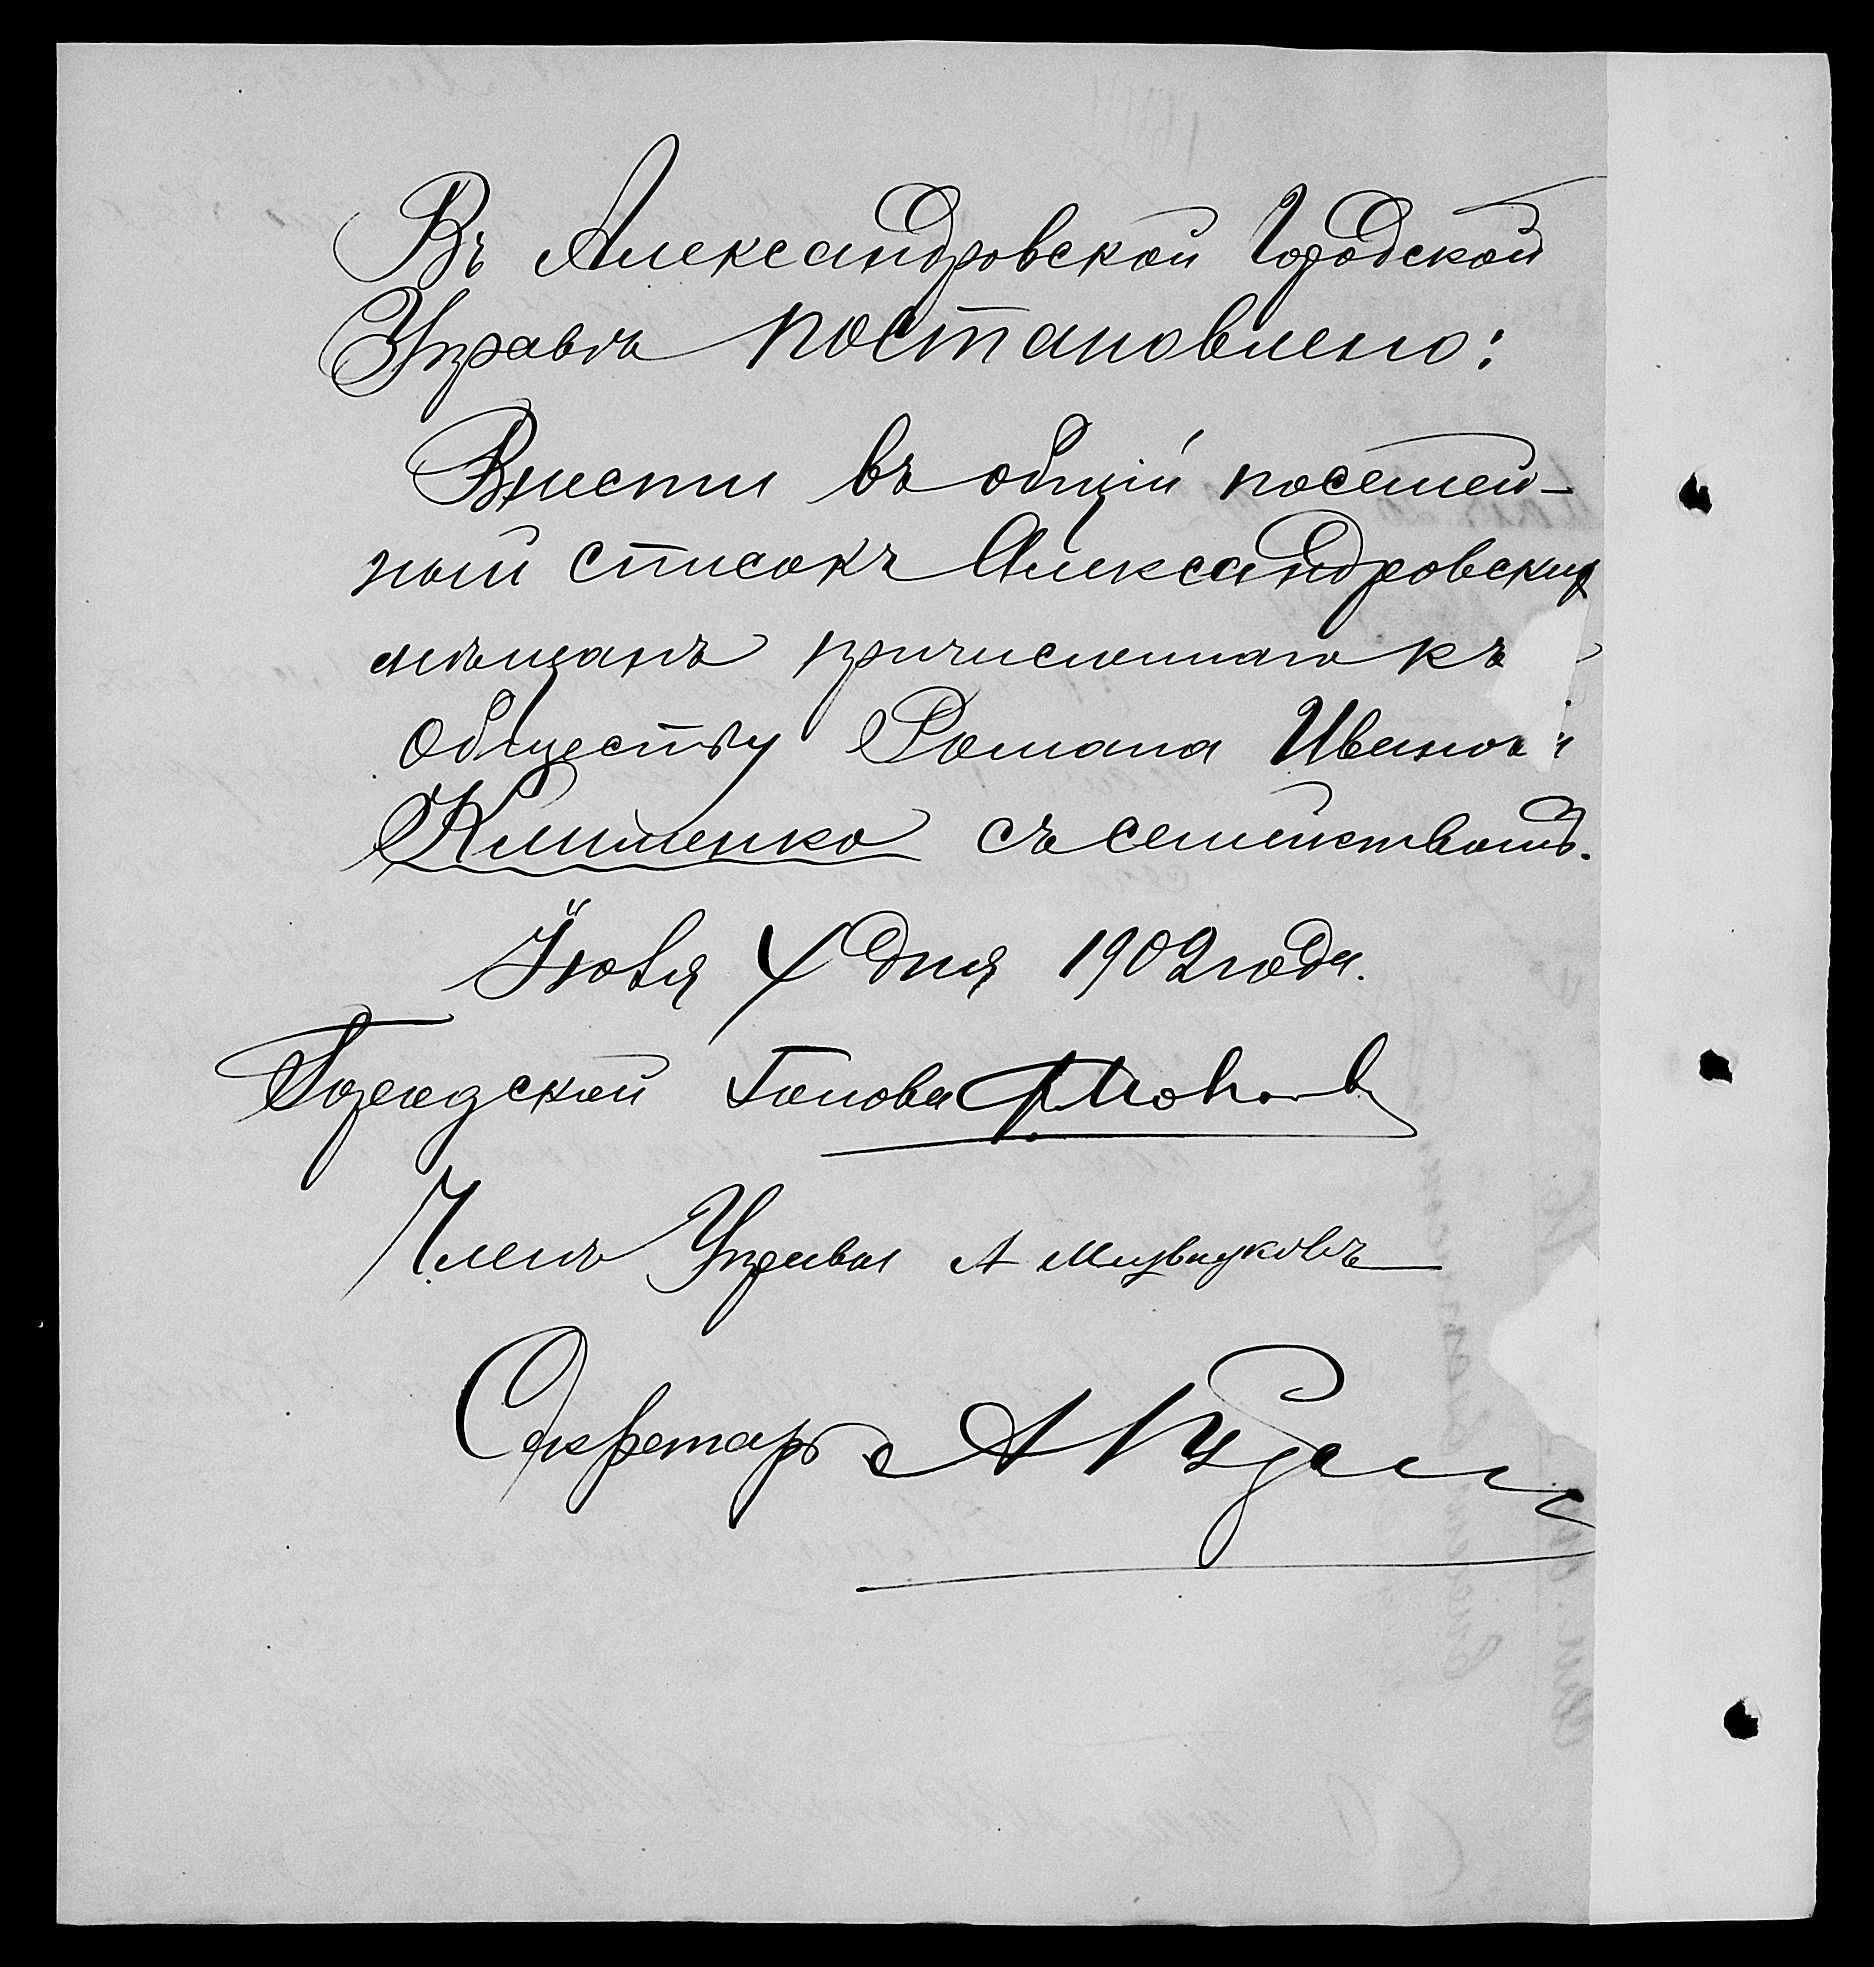 Въ Александровской Городской
Управѣ постановлено:
Внести въ общій посемей-
ный списокъ Александровских
мѣщанъ причисленнаго къ
обществу Романа Иванова
Клименко съ семействомъ.
Іюня 4 дня 1902 года.
Городской Голова
Членъ Управы А
Секретарь А